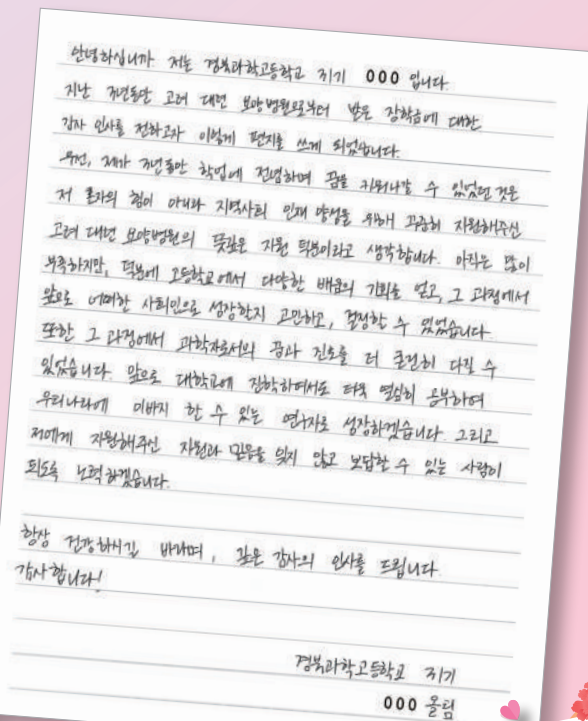 안녕하십니까 저는 경북과학고등학교 31기 000 입니다.
지난 3년동안 고려 대연 요양병원으로부터 받은 장학금에 대한
감사 인사를 전하고자 이렇게 편지를 쓰게 되었습니다.
우선, 제가 3년동안 학업에 전념하며 꿈을 키워나갈 수 있었던 것은
저 혼자의 힘이 아니라 지역사회 인재 양성을 위해 꾸준히 지원해주신
고려 대연 요양병원의 뜻깊은 지원 덕분이라고 생각합니다. 아직은 많이
부족하지만, 덕분에 고등학교에서 다양한 배움의 기회를 얻고, 그 과정에서
앞으로 어떠한 사회인으로 성장할지 고민하고, 결정할 수 있었습니다.
또한 그 과정에서 과학자로서의 꿈과 진로를 더 굳건히 다질 수
있었습니다. 앞으로 대학교에 진학하여서도 더욱 열심히 공부하여
우리나라에 이바지 할 수 있는 연구자로 성장하겠습니다. 그리고
저에게 지원해주신 지원과 믿음을 잊지 않고 보답할 수 있는 사람이
되도록 노력하겠습니다.
항상 건강하시길 바라며, 깊은 감사의 인사를 드립니다.
감사합니다!
경북과학고등학교 31기
000 올림